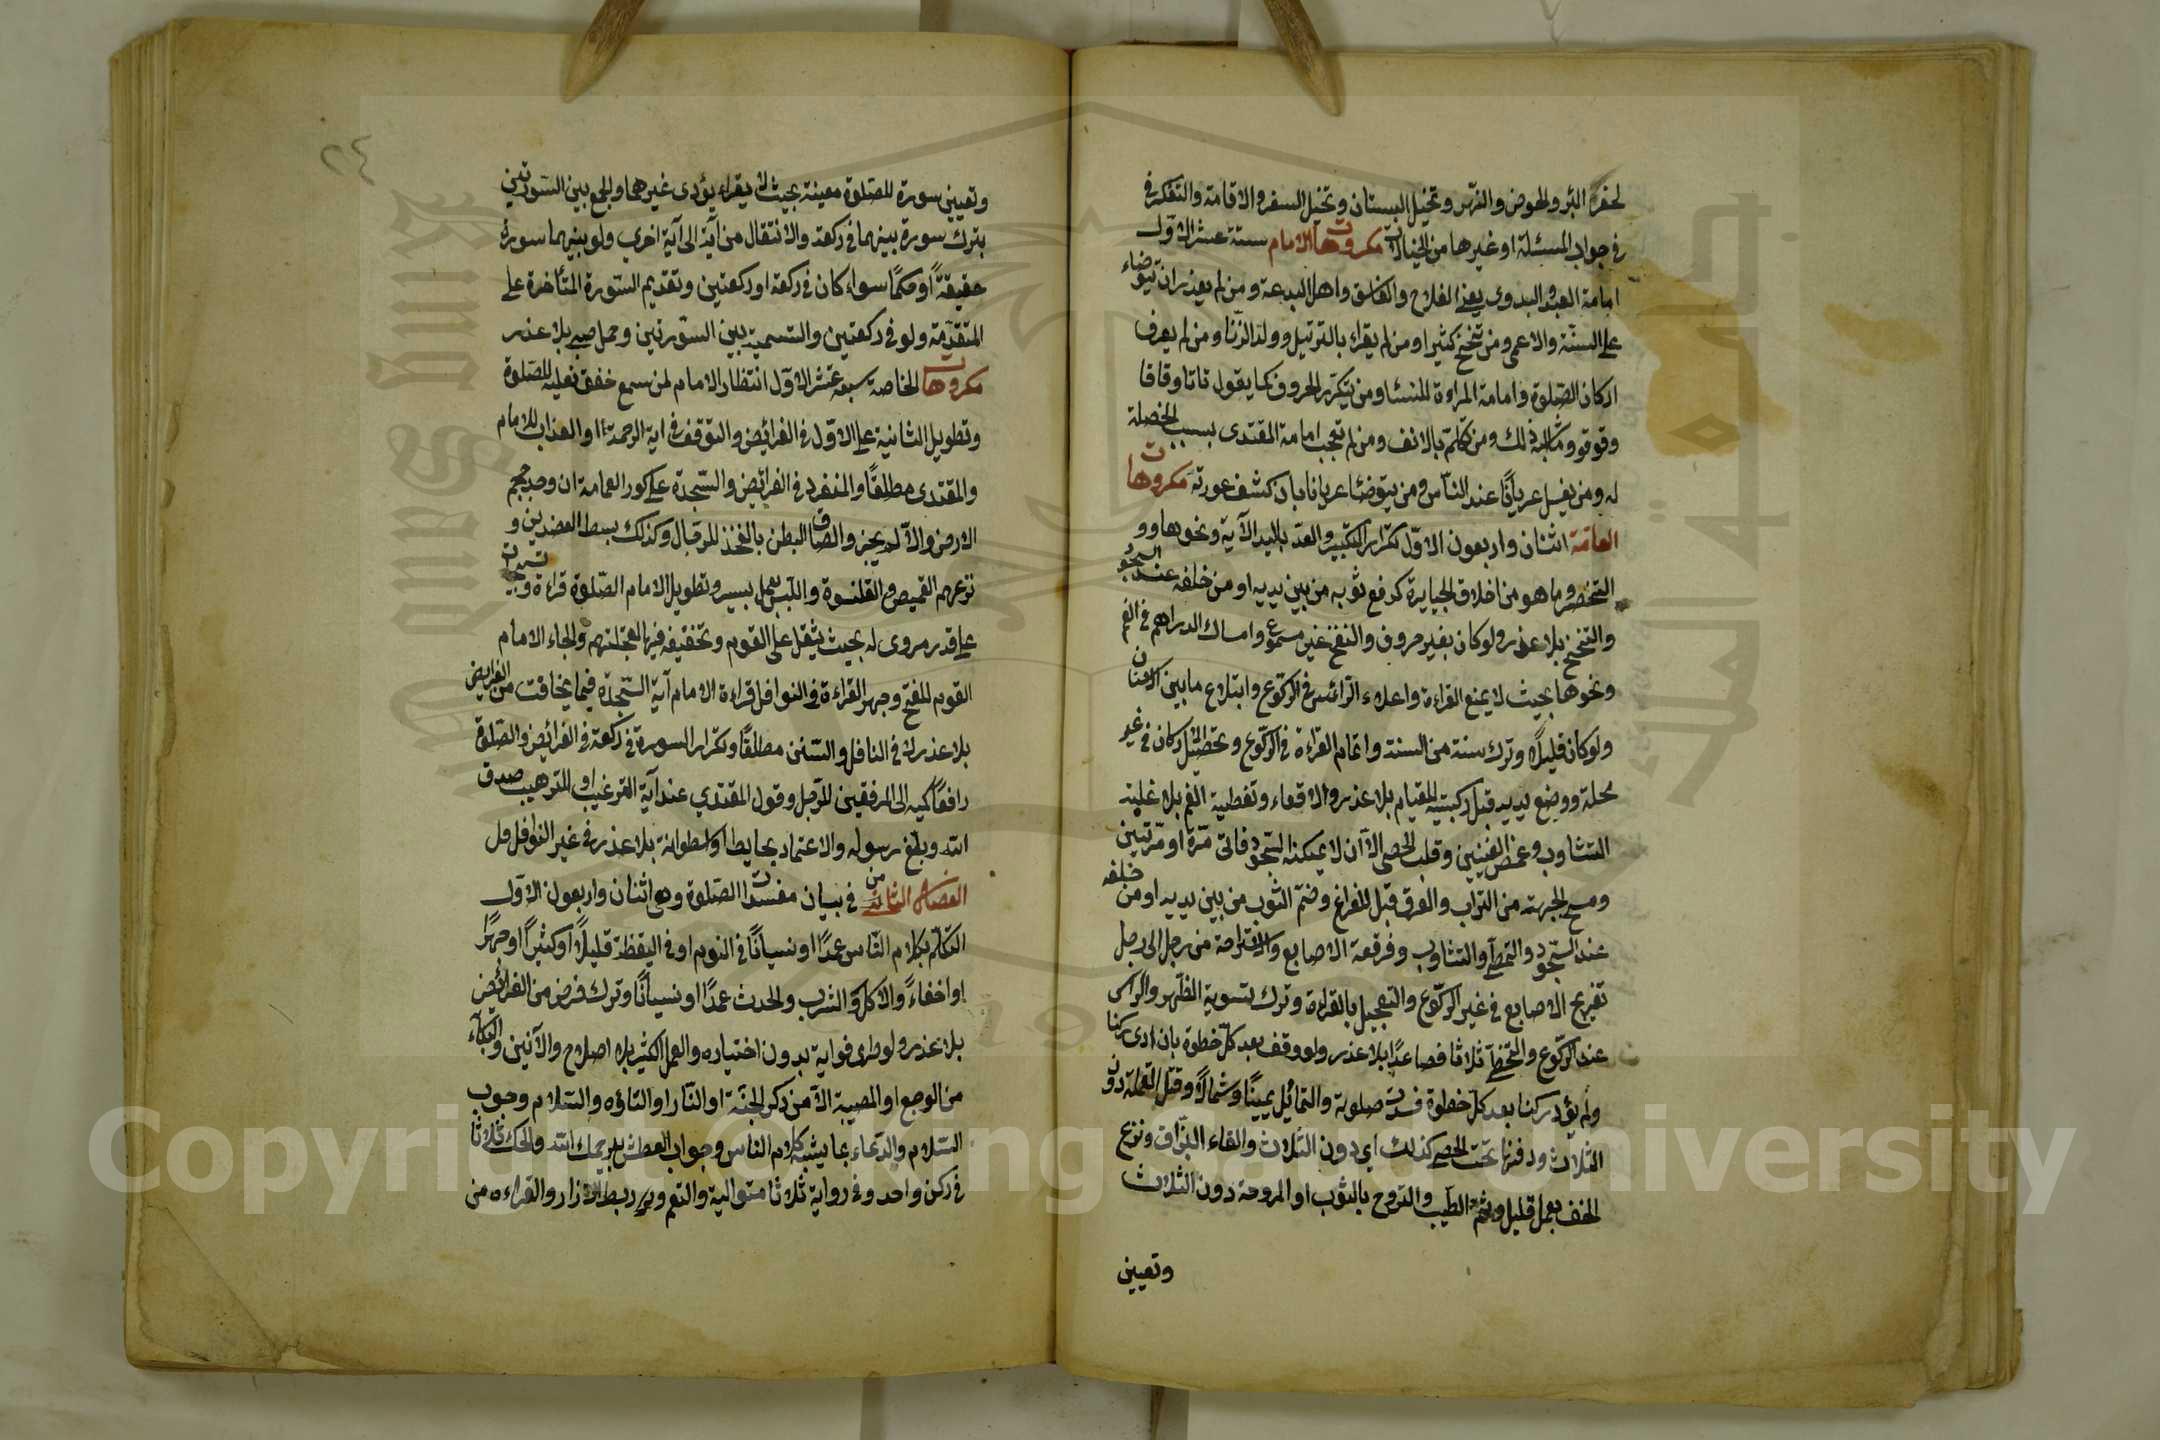 لحفر البئر والحوض والنهر وتخيل البستان وتخيل السفر والاقامة والتفكر في
في جواب المسئلة او غيرها من الخيالات مكروهات الامام ستة عشر الاول
امامة العبد والبدوى يعنى الفلاح والفاسق واهل البدعة ومن لم يعذر ان يتوضاء
على السنة والاعمى ومن تنحنح كثيرا ومن لم يقراء بالترتيل وولد الزنا ومن لم يعرف
اركان الصلوة وامامة المراءة للنساء ومن يتكرر الحروف كما يقول تاتا وقاقا
وقوقو وما شابه ذلك ومن تكلم بالانف ومن لم تجب امامة المقتدى بسبب الخصلة
له ومن يغسل عريانا عند الناس ومن يتوضأ عريانا بان كشف عورته مكروهات
العامة اثنان واربعون الاول تكرار التكبير والعد باليد الآية ونحوها و
التخصر وما هو من اخلاق الجبابرة كرفع ثوبه من بين يديه او من خلفه عند السجود
والتنحنح بلا عذر ولو كان بغير حروف والنفخ غير مسموع وامساك الدراهم في الفم
ونحوها بحيث لا يمنع القراءة واعلاء الرائس في الركوع وابتلاع ما بين الاسنان
ولو كان قليلا وترك سنة من السنة واتمام القراءة في الركوع وتحصيل الاركان في غير
محلة ووضع يديه قبل ركبتيه للقيام بلا عذر والاقعاء وتغطية الفم بلا غلبة
التثاوب وغمض العينين وقلب الحصى الا ان لا يمكنه السجود فاتى مرة او مرتين
ومسح الجبهة من التراب والعرق قبل الفراغ وضم الثوب من بين يديه او من خلفه
عند السجود والتمطى والتثاوب وفرقعة الاصابع والاستراحة من رجل الى رجل
تفريج الاصابع في غير الركوع والتعجيل بالقراءة وترك تسوية الظهر والراس
عند الركوع والتخطى ثلاثا فصاعدا بلا عذر ولو وقف بعد كل خطوة بان ادى ركنا
ولم يؤد ركنا بعد كل خطوة فسدت صلوته والتمائل يمينا وشمالا وقتل القملة دون
الثلاث ودفنها تحت الحصى كذلك اى دون الثلاث والقاء البزاق ونزع
الخف بعمل قليل وشم الطيب والتروح بالثوب او المروحة دون الثلاث
وتعيين
٢٤
وتعيين سورة للصلوة معينة بحيث لا يقراء يؤدى غيرهما والجمع بين السورتين
بترك سورة بينهما في ركعة والانتقال من آية الى آية اخرى ولو بينهما سورة
حقيقة او حكما سواء كان في ركعة او ركعتين وتقديم السورة المتأخرة على
المتقدمة ولو في ركعتين والتسمية بين السورتين وحمل صبى بلا عذر
مكروهات الخاصة سبعة عشر الاول انتظار الامام لمن سمع خفق نعليه للصلوة
وتطويل الثانية على الاول في الفرائض والتوقف في اية الرحمة او العذاب للامام
والمقتدى مطلقا والمنفرد في الفرائض والسجدة على كور العمامة ان وجد حجم
الارض والا لم يجز والصاق البطن بالفخذ للرجال وكذلك بسط العضدين و
نزعهم القميص والقلنسوة واللبس بعمل يسير وتطويل الامام الصلوة قراءة وتسبيحات
على قدر مروى له بحيث يثقل على القوم وتخفيفه فيها لعجلتهم والجاء الامام
القوم للفتح وجهر القراءة في النوافل قراءة الامام آية السجدة فيما يخافت من الفرايض
بلا عذر لا في النافل والسنن مطلقا وتكرار السورة في ركعة في الفرائض والصلوة
رافعا كميه الى المرفقين للرجل وقول المقتدي عند آية الترغيب او الترهيب صدق
الله وبلغ رسوله والاعتماد بحايط او اسطوانة بلا عذر في غير النوافل
الفصل الثامن في بيان مفسدات الصلوة وهى اثنان واربعون الاول
التكلم بكلام الناس عمدا او نسيانا في النوم او في اليقظة قليلا او كثيرا او جهرا
او اخفاء والاكل والشرب والحدث عمدا او نسيانا وترك فرض من الفرائض
بلا عذر ولو طرى فواية بدون اختياره والعمل الكثير بلا اصلاح والآنين والبكاء
من الوجع او المصيبة الا من ذكر الجنة او النار او التاؤه والسلام وجواب
السلام والدعاء بما يشبه كلام الناس وجواب العطش بيرحمك الله والحك ثلاثا
في ركن واحد وفي رواية ثلاثا متوالية والتعم وربط الازار والقراءه من
Copyright © King Saud University